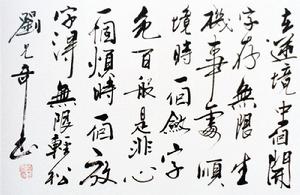 在逆境中一個開
字存無限生
機事處順
境時一個斂字
免百般是非心
一個煩時一個放
字得無限輕松